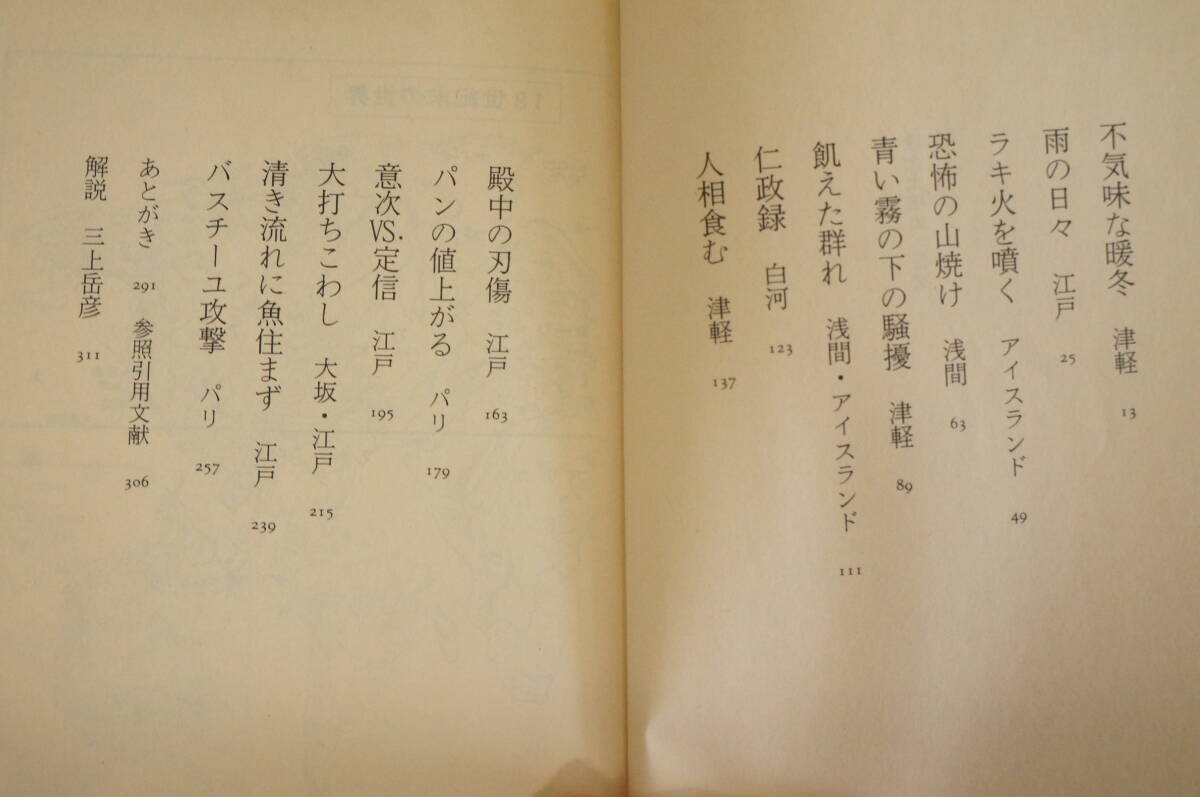 不気味な暖冬 津軽 13
雨の日々 江戸 25
ラキ火を噴く アイスランド 49
恐怖の山焼け 浅間 63
青い霧の下の騒擾 津軽 89
飢えた群れ 浅間・アイスランド 111
仁政録 白河 123
人相食む 津軽 137
殿中の刃傷 江戸 163
パンの値上がる パリ 179
意次VS.定信 江戸 195
大打ちこわし 大坂・江戸 215
清き流れに魚住まず 江戸 239
バスチーユ攻撃 パリ 257
あとがき 291 参照引用文献 306
解説 三上岳彦 311
18世紀末の世界